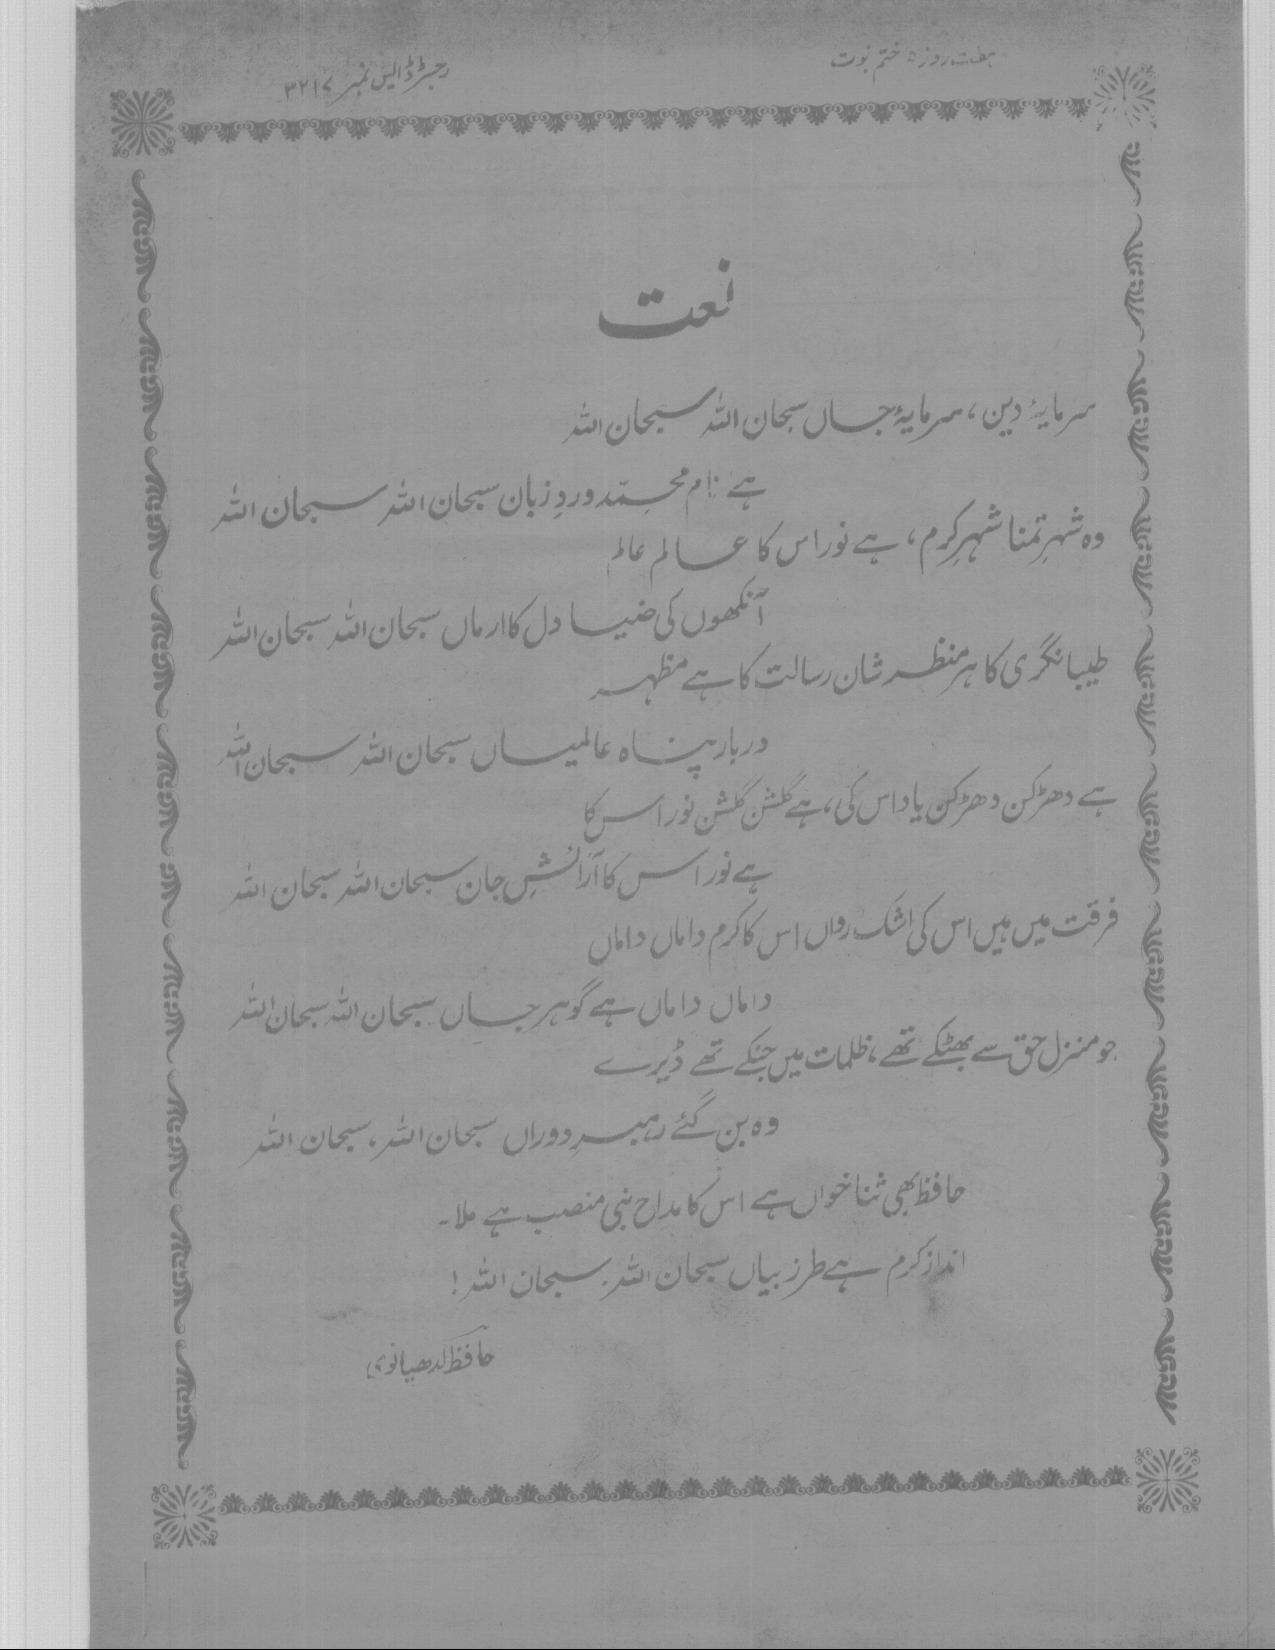 ہفت روزہ ختم نبوت
رجسٹرڈ ایس نمبر ۳۲۱۷
نعت
سرمایۂ دین، سرمایۂ جاں سبحان اللہ سبحان اللہ
ہے نام محمّد وردِ زبان سبحان اللہ سبحان اللہ
وہ شہرِ تمنا شہرِ کرم، ہے نور اس کا عالم عالم
آنکھوں کی ضیا دل کا ارماں سبحان اللہ سبحان اللہ
طیبا نگری کا ہر منظر شان رسالت کا ہے مظہر
دربار پناہ عالمیاں سبحان اللہ سبحان اللہ
ہے دھڑکن دھڑکن یاد اس کی، ہے گلشن گلشن نور اس کا
ہے نور اس کا آرائشِ جان سبحان اللہ سبحان اللہ
فرقت میں ہیں اس کی اشک رواں اس کا کرم داماں داماں
داماں داماں ہے گوہر جاں سبحان اللہ سبحان اللہ
جو منزل حق سے بھٹکے تھے، ظلمات میں جنکے تھے ڈیرے
وہ بن گئے رہبرِ دوراں سبحان اللہ، سبحان اللہ
حافظ بھی ثنا خواں ہے اس کا مداح نبی منصب ہے ملا۔
انداز کرم ہے طرز بیاں سبحان اللہ۔ سبحان اللہ!
حافظ لدھیانوی